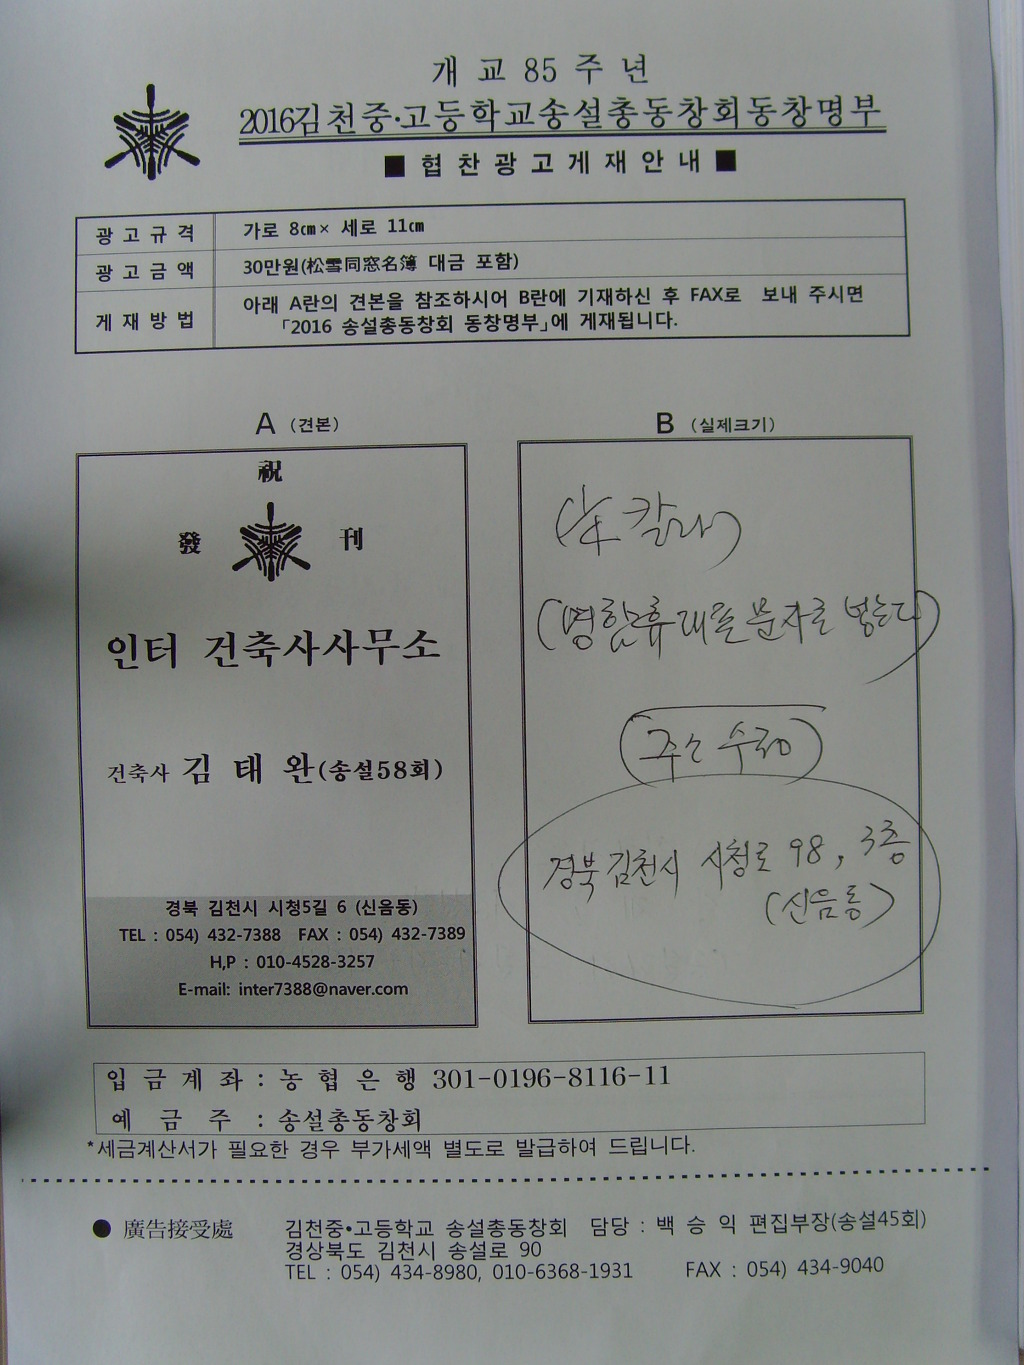 개 교 85 주 년
2016김천중·고등학교송설총동창회동창명부
■ 협 찬 광 고 게 재 안 내 ■
광 고 규 격 가로 8㎝× 세로 11㎝
광 고 금 액 30만원(松雪同窓名簿 대금 포함)
게 재 방 법 아래 A란의 견본을 참조하시어 B란에 기재하신 후 FAX로 보내 주시면
「2016 송설총동창회 동창명부」에 게재됩니다.
A (견본)
祝
發 刊
인터 건축사사무소
건축사 김 태 완(송설58회)
경북 김천시 시청5길 6 (신음동)
TEL : 054) 432-7388 FAX : 054) 432-7389
H,P : 010-4528-3257
E-mail: inter7388@naver.com
B (실제크기)
칼라)
(명함 휴대폰 문자로 넣는다)
주소 수정
경북 김천시 시청로 98, 3층
(신음동)
입 금 계 좌 : 농 협 은 행 301-0196-8116-11
예 금 주 : 송설총동창회
*세금계산서가 필요한 경우 부가세액 별도로 발급하여 드립니다.
● 廣告接受處 김천중·고등학교 송설총동창회 담당 : 백 승 익 편집부장(송설45회)
경상북도 김천시 송설로 90
TEL : 054) 434-8980, 010-6368-1931 FAX : 054) 434-9040